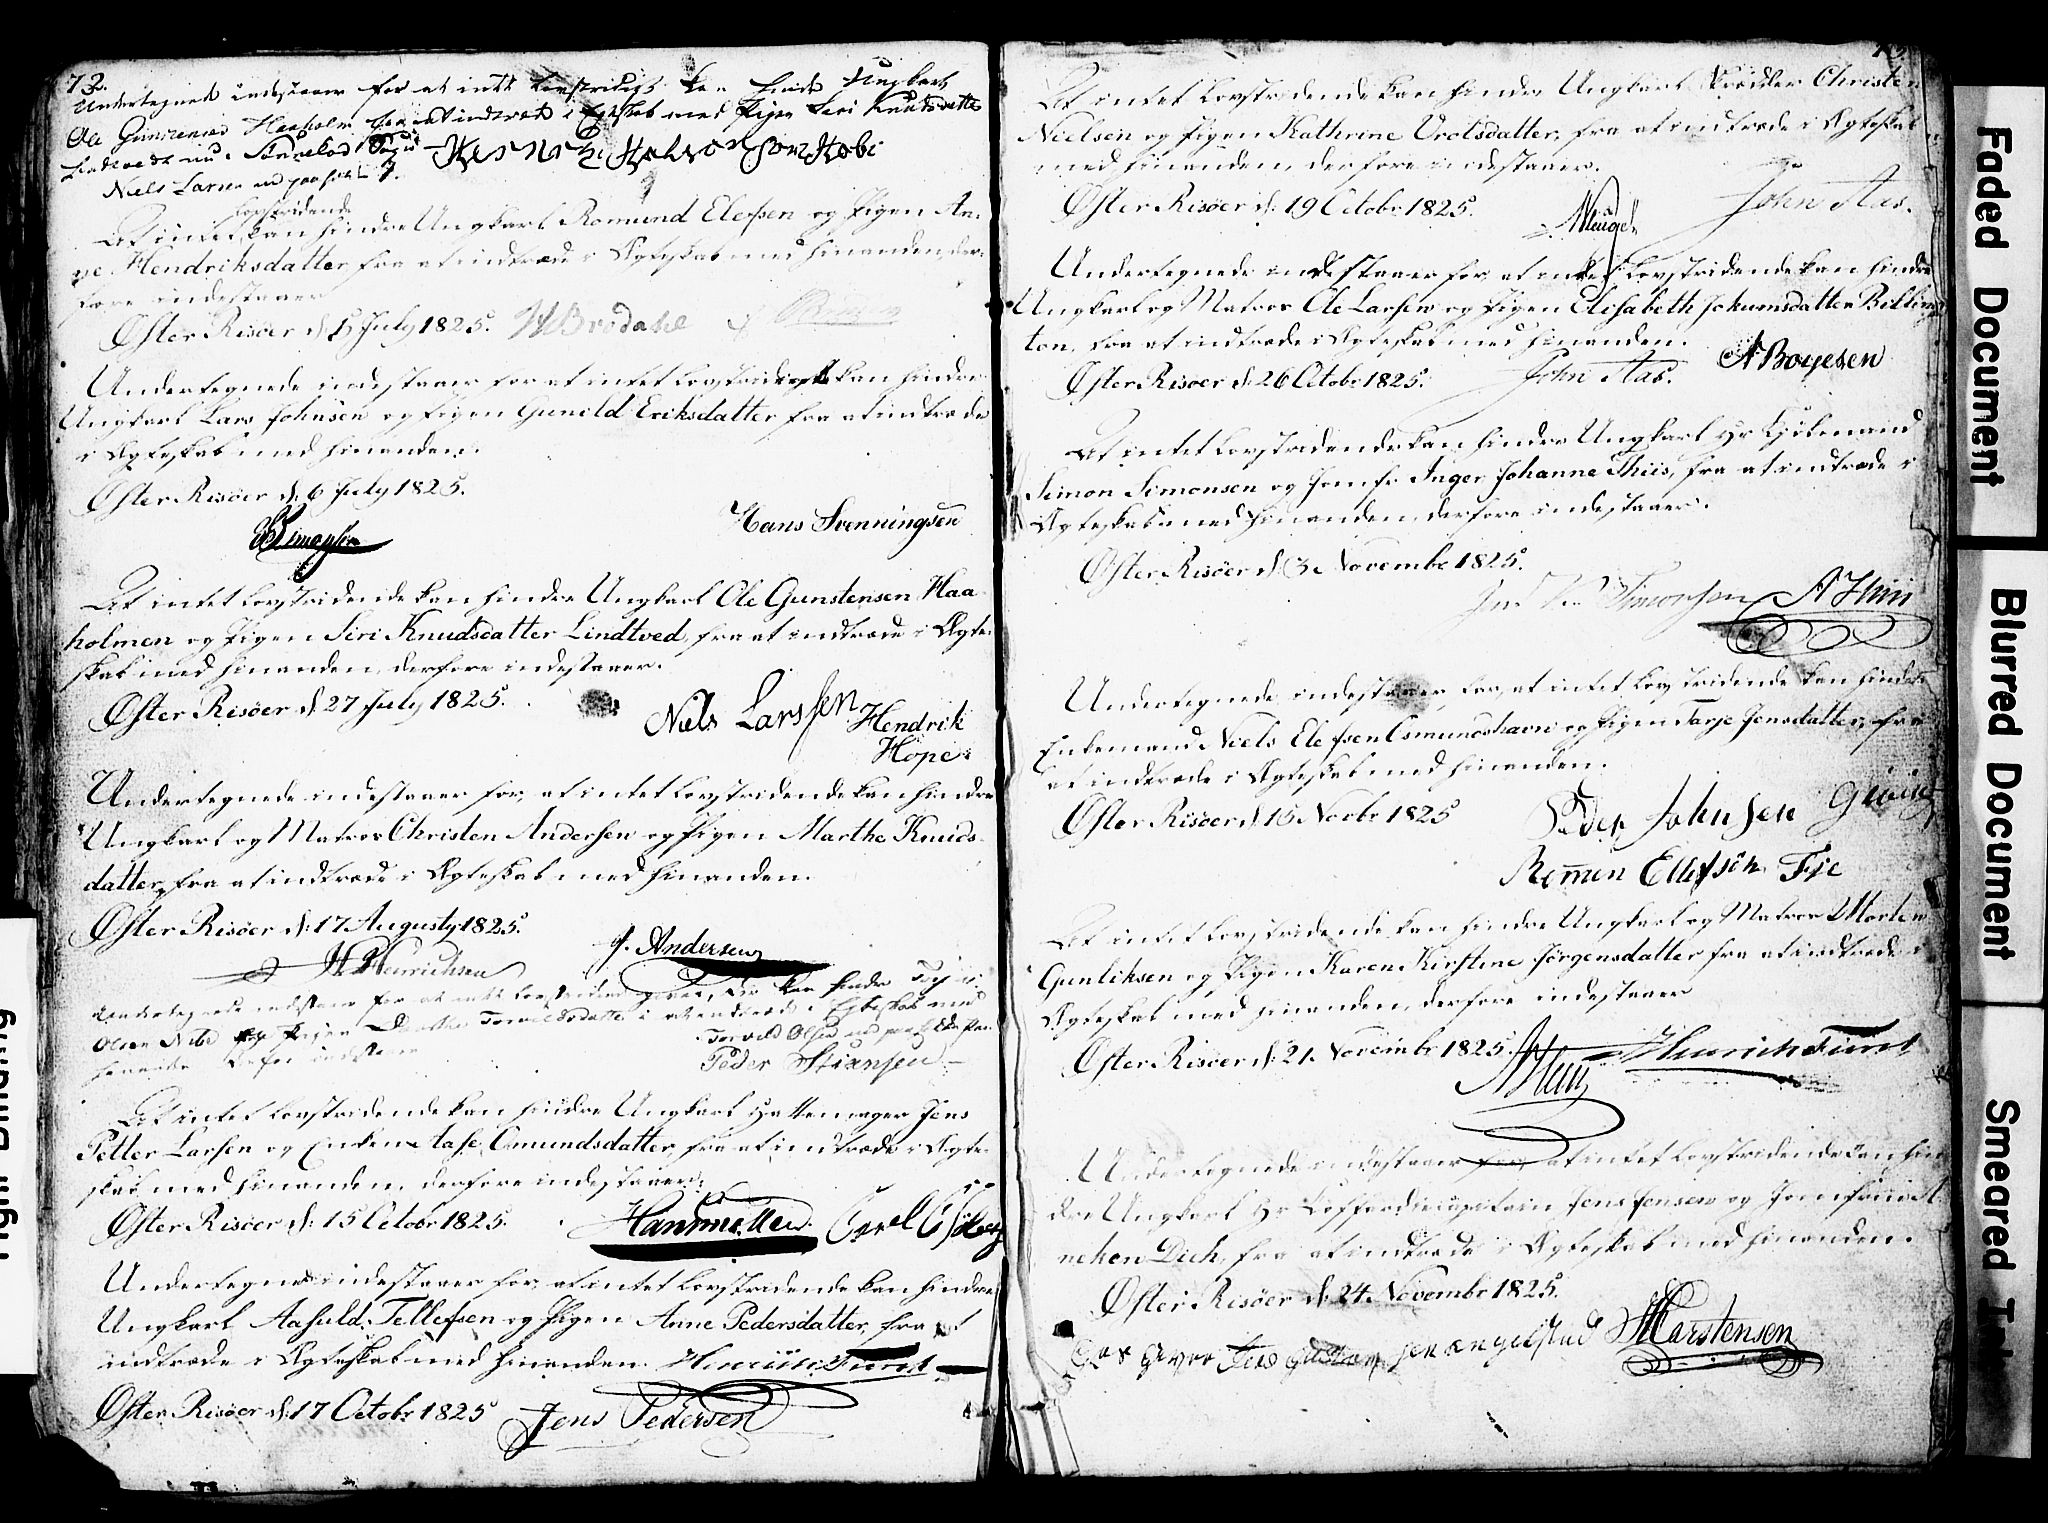 72.
Undertegnede indestaaer for at intet lovstridigt kan hindre Ungkarl
Ole Gunstensen Haaholm fra at indtræde i Egteskab med Pigen Siri Knudsdatter
Lindtvedt nu i Søndelød Sogn
Niels Larsen med paaholden Pen
lovstridende
At intet kan hindre Ungkarl Romund Elefsen og Pigen An-
ne Hendriksdatter, fra at indtræde i Ægteskab med hinanden, der-
fore indestaaer
Øster Risöer d: 5 July 1825. W Brodahl
Undertegnede indestaaer for, at intet lovstridigt kan hindre
Ungkarl Lars Johnsen og Pigen Gunild Eriksdatter fra at indtræde
i Ægteskab med hinanden.
Øster Risöer d. 6 July 1825.
Simonsen Hans Svenningsen
At intet lovstridende kan hindre Ungkarl Ole Gunstensen Haa-
holmen og Pigen Siri Knudsdatter Lindtved, fra at indtræde i Ægte-
skab med hinanden, derfore indestaaer.
Øster Risöer d. 27 July 1825.
Niels Larssen Hendrik
Hope
Undertegnede indestaaer for, at intet lovstridende kan hindre
Ungkarl og Matros Christen Andersen og Pigen Marthe Knuds-
datter, fra at indtræde i Ægteskab med hinanden.
Øster Risöer d: 17 Augusty 1825.
H Henrichsen J. Andersen
Undertegnede indestaaer for at intet lovstridende kan hindre
Olsen og Pigen Torvildsdatter i at indtræde i Egteskab med
hinanden derfor indstaaer Torvild Olsen med paaholden Pen
Peder Stiansen
At intet lovstridende kan hindre Ungkarl Hattemager Jens
Petter Larsen og Enken Aase Omundsdatter, fra at indtræde i Ægte-
skab med hinanden, derfore indestaaer.
Øster Risöer d: 15 Octobr 1825.
Undertegnede indestaaer for, at intet lovstridende kan hindre
Ungkarl Aasuld Tellefsen og Pigen Anne Pedersdatter, fra at
indtræde i Ægteskab med hinanden. Hinrich Fürst
Øster Risöer d: 17 Octobr 1825 Jens Pedersen
73.
At intet lovstridende kan hindre Ungkarl Skrædder Christen
Nielsen og Pigen Kathrine Vrolsdatter, fra at indtræde i Ægteskab
med hinanden, derfore indestaaer.
Øster Risöer d: 19 Octobr 1825. John Aas.
Undertegnede indestaaer for, at intet lovstridende kan hindre
Ungkarl og Matros Ole Larsen og Pigen Elisabeth Jokumsdatter Billing-
ton, fra at indtræde i Ægteskab med hinanden.
Øster Risöer d: 26 Octobr 1825. John Aas. A Boyesen
At intet lovstridende kan hindre Ungkarl Hr Kjöbmand
Simon Simonsen og Jomfr Inger Johanne Thiis, fra at indtræde i
Ægteskab med hinanden, derfore indestaaer.
Øster Risöer d: 3 Novembr 1825.
Simonsen A Thiis
Undertegnede indestaaer for, at intet lovstridende kan hindre
Enkemand Niels Elefsen Osmundshavn og Pigen Tarje Jensdatter, fra
at indtræde i Ægteskab med hinanden.
Øster Risöer d 15 Novbr 1825 Peder Johnsen
Romun Ellefsön Fie
At intet lovstridende kan hindre Ungkarl og Matros Morten
Gunliksen og Pigen Karen Kirstine Jörgensdatter fra at indtræde i
Ægteskab med hinanden, derfore indestaaer
Øster Risöer d: 21. Novembr 1825. Hinrich Fürst
Undertegnede indestaaer for, at intet lovstridende kan hin-
dre Ungkarl Hr Coffardicapitain Jens Jensen og Jomfru
neken Dich, fra at indtræde i Ægteskab med hinanden.
Øster Risöer d. 24 Novembr 1825.
Marstensen
Faded Document
Blurred Document
Smeared